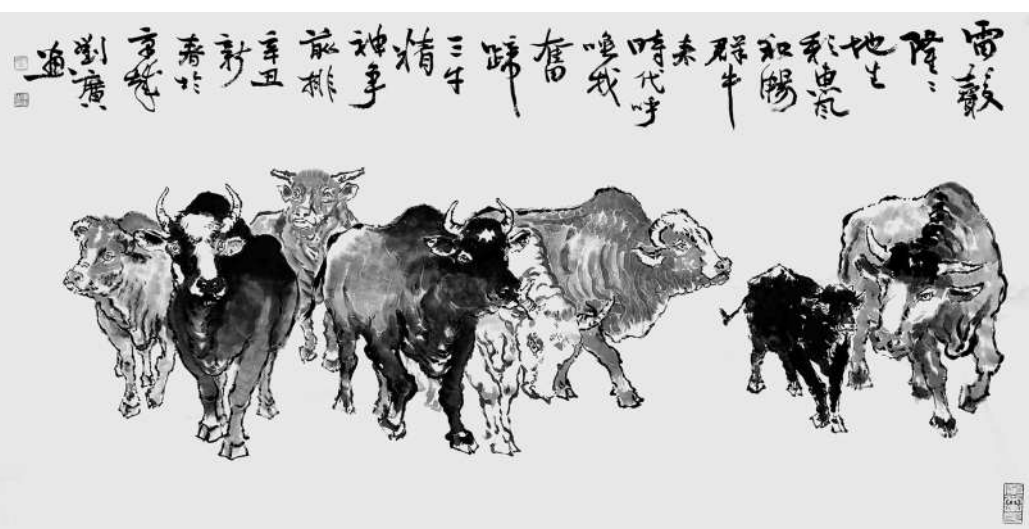 雷鼓
隆々
地生
彩惠風
和暢
群牛
来
時代呼
喚我
奮
蹄
三牛
精
神争
前排
辛丑
新
春於
京
劉廣
画